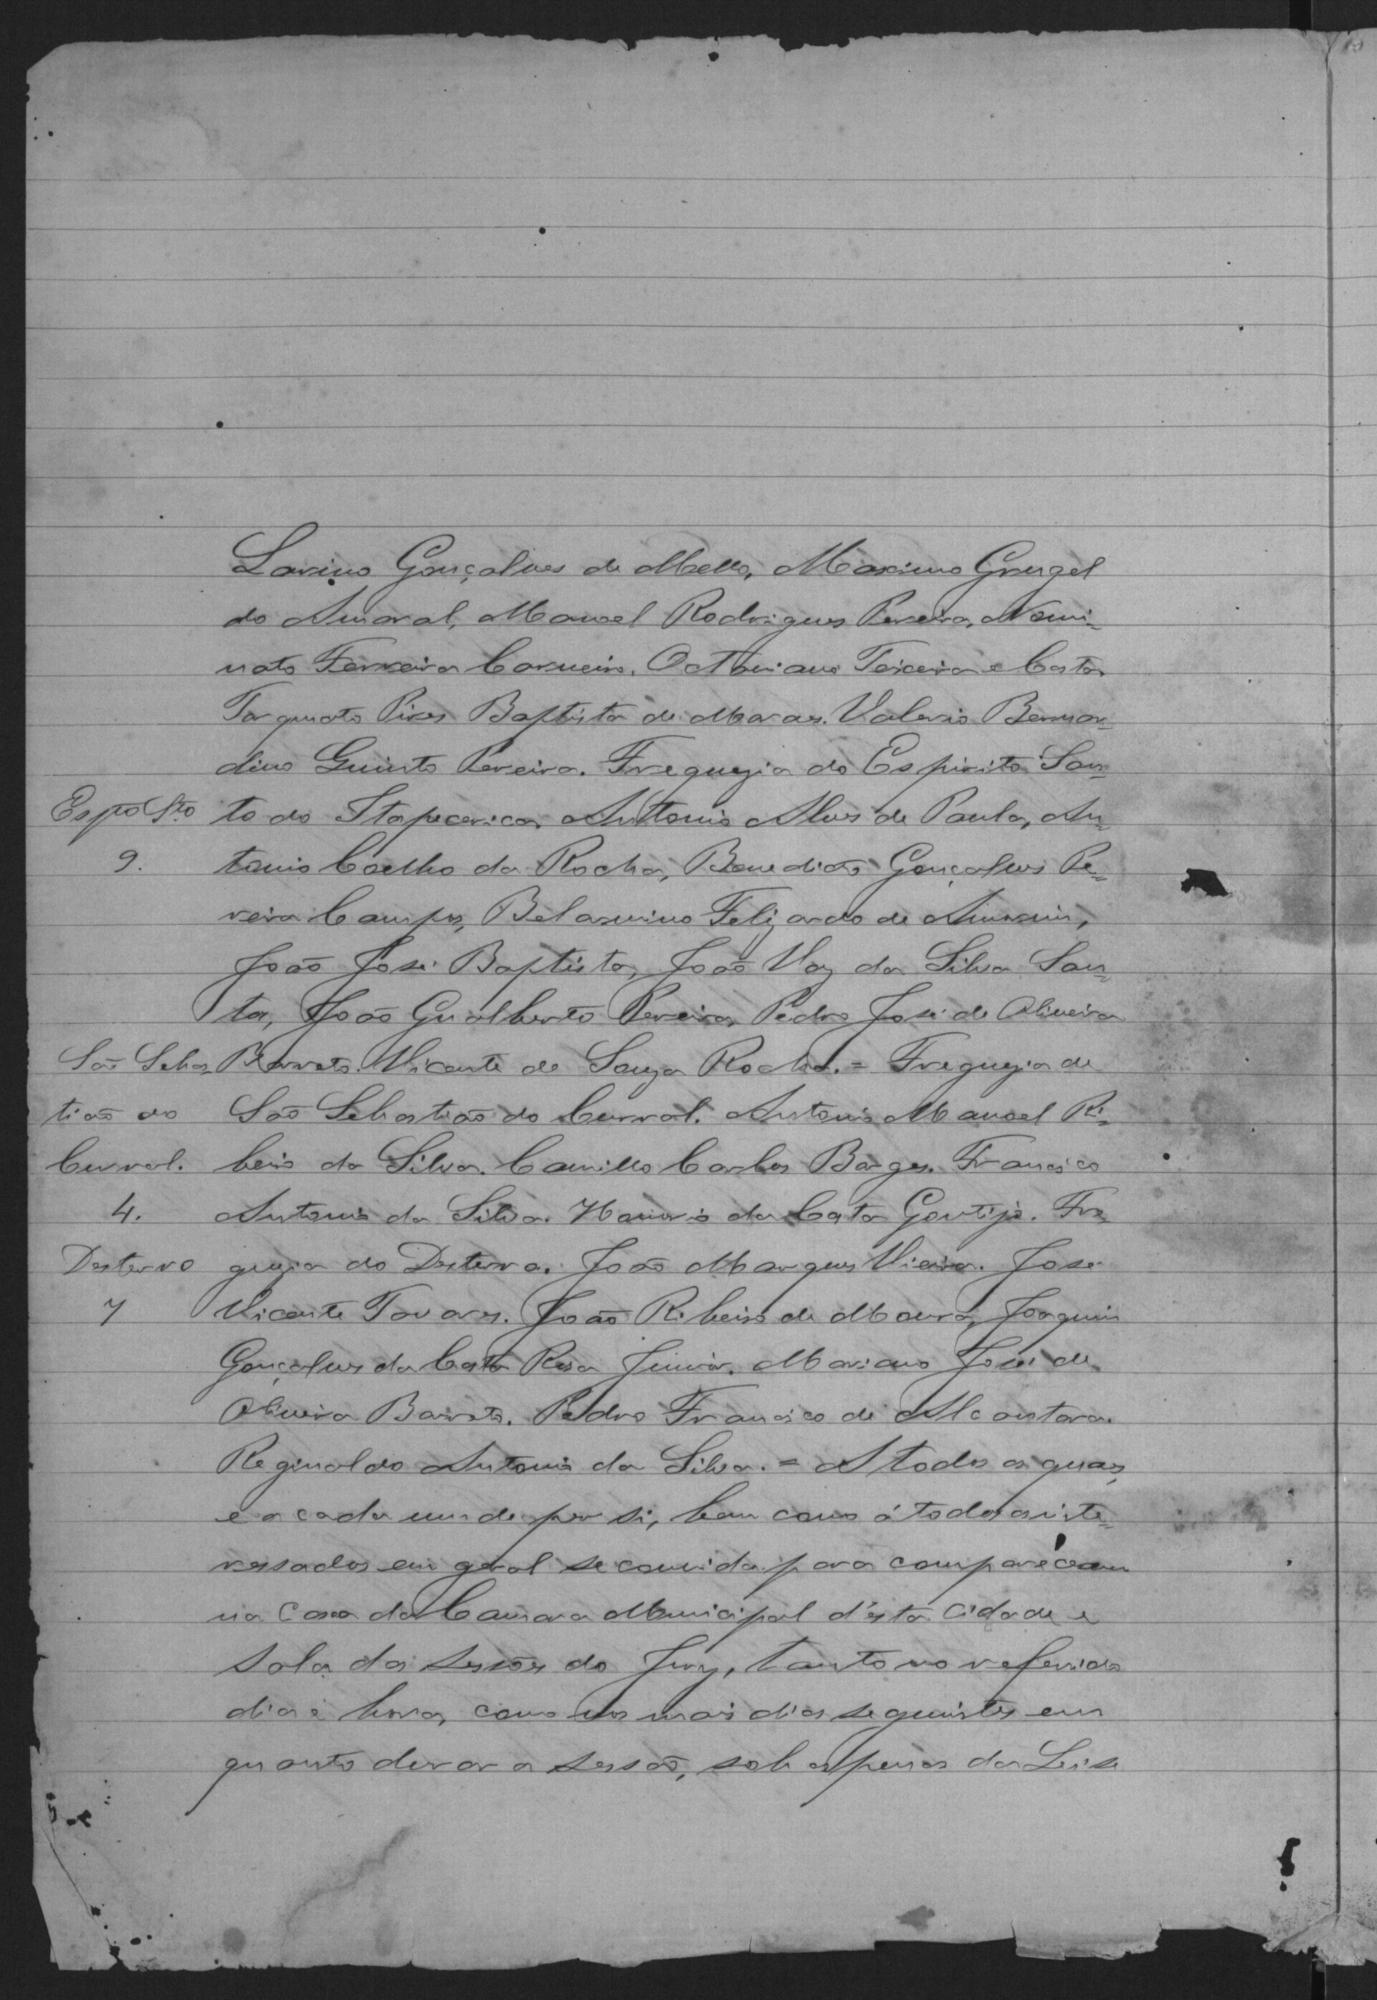 Lavino Gonçalves de Mello, Maximo Grugel
do Amaral, Manoel Rodrigues Pereira, Nomi-
nato Ferreira Carneiro. Octaviano Teixeira e Costa
Torquato Pires Baptista de Moraes. Valerio Bernar-
dino Quinto Pereira. Freguezia do Espirito San-
Espo Sto to do Itapecerica, Antonio Alves de Paula, An-
9. tonio Coelho da Rocha, Benedicto Gonçalves Pe-
reira Campos, Belarmino Felizardo de Amorim,
João José Baptista, João Vaz da Silva San-
ta, João Gualberto Pereira, Pedro José de Oliveira
São Sebas Barreto. Vicente de Souza Rocha. = Freguezia de
tião do São Sebastião do Curral. Antonio Manoel Ri-
Curral. beiro da Silva. Camillo Carlos Borges. Francisco
4. Antonio da Silva. Honorio da Costa Gontijo. Fre-
Desterro guezia do Desterro. João Marques Vieira. José
7 Vicente Tavares. João Ribeiro de Moura, Joaquim
Gonçalves da Costa Rosa Junior. Mariano José de
Oliveira Barreto. Pedro Francisco de Alcantara.
Reginaldo Antonio da Silva. = A todos os quaes,
e a cada um de per si, bem como á todos os inte-
ressados em geral se convida para comparecerem
na casa da Camara Municipal d'esta Cidade e
sala das sessões do Jury, tanto no referido
dia e hora, como nos mais dias seguintes em
quanto durar a sessão, sob as penas da Lei se